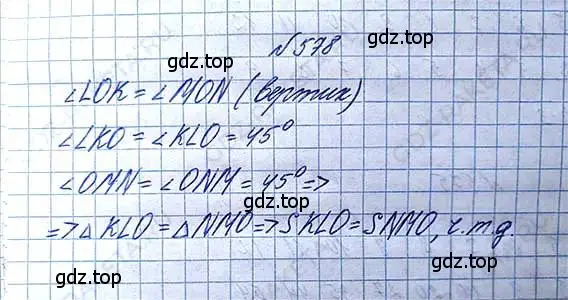 №578
gdz.top
∠LOK = ∠MON (вертик)
∠LKO = ∠KLO = 45°
gdz.top
∠OMN = ∠ONM = 45° =>
gdz.top
=> △KLO = △NMO => SKLO = SNMO, ч.т.д.
gdz.top gdz.top